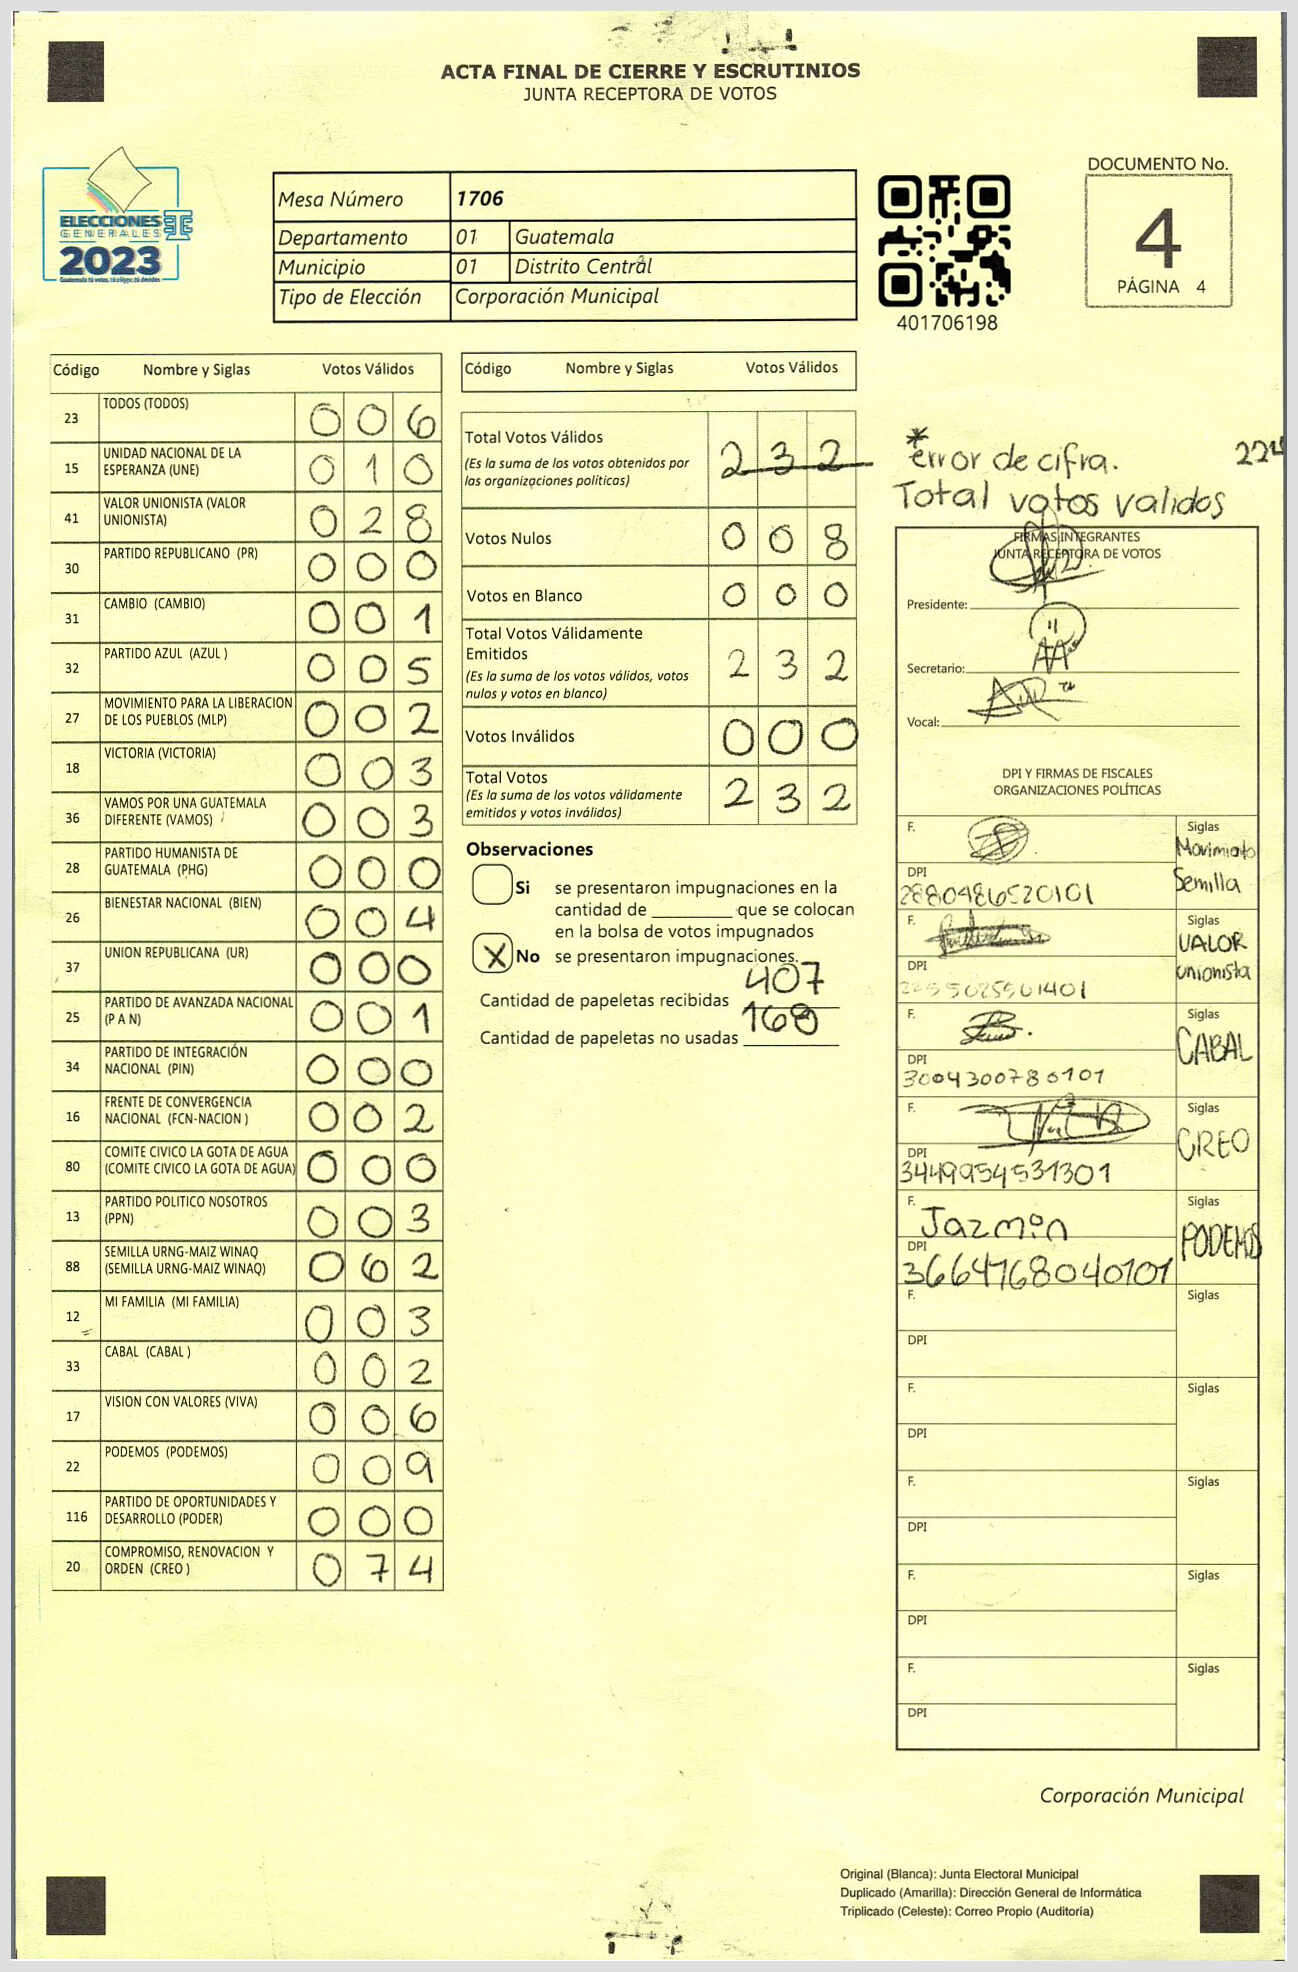 ACTA FINAL DE CIERRE Y ESCRUTINIOS
JUNTA RECEPTORA DE VOTOS
ELECCIONES
GENERALES
2023
Mesa Número 1706
Departamento 01 Guatemala
Municipio 01 Distrito Central
Tipo de Elección Corporación Municipal
401706198
DOCUMENTO No.
4
PÁGINA 4
Código Nombre y Siglas Votos Válidos
23 TODOS (TODOS) 0 0 6
15 UNIDAD NACIONAL DE LA ESPERANZA (UNE) 0 1 0
41 VALOR UNIONISTA (VALOR UNIONISTA) 0 2 8
30 PARTIDO REPUBLICANO (PR) 0 0 0
31 CAMBIO (CAMBIO) 0 0 1
32 PARTIDO AZUL (AZUL ) 0 0 5
27 MOVIMIENTO PARA LA LIBERACION DE LOS PUEBLOS (MLP) 0 0 2
18 VICTORIA (VICTORIA) 0 0 3
36 VAMOS POR UNA GUATEMALA DIFERENTE (VAMOS) 0 0 3
28 PARTIDO HUMANISTA DE GUATEMALA (PHG) 0 0 0
26 BIENESTAR NACIONAL (BIEN) 0 0 4
37 UNION REPUBLICANA (UR) 0 0 0
25 PARTIDO DE AVANZADA NACIONAL (P A N) 0 0 1
34 PARTIDO DE INTEGRACIÓN NACIONAL (PIN) 0 0 0
16 FRENTE DE CONVERGENCIA NACIONAL (FCN-NACION ) 0 0 2
80 COMITE CIVICO LA GOTA DE AGUA (COMITE CIVICO LA GOTA DE AGUA) 0 0 0
13 PARTIDO POLITICO NOSOTROS (PPN) 0 0 3
88 SEMILLA URNG-MAIZ WINAQ (SEMILLA URNG-MAIZ WINAQ) 0 6 2
12 MI FAMILIA (MI FAMILIA) 0 0 3
33 CABAL (CABAL ) 0 0 2
17 VISION CON VALORES (VIVA) 0 0 6
22 PODEMOS (PODEMOS) 0 0 9
116 PARTIDO DE OPORTUNIDADES Y DESARROLLO (PODER) 0 0 0
20 COMPROMISO, RENOVACION Y ORDEN (CREO ) 0 7 4
Código Nombre y Siglas Votos Válidos
Total Votos Válidos 2 3 2
(Es la suma de los votos obtenidos por las organizaciones politicas)
Votos Nulos 0 0 8
Votos en Blanco 0 0 0
Total Votos Válidamente Emitidos 2 3 2
(Es la suma de los votos válidos, votos nulos y votos en blanco)
Votos Inválidos 0 0 0
Total Votos 2 3 2
(Es la suma de los votos válidamente emitidos y votos inválidos)
Observaciones
Si se presentaron impugnaciones en la
cantidad de ________ que se colocan
en la bolsa de votos impugnados
X No se presentaron impugnaciones.
Cantidad de papeletas recibidas 407
Cantidad de papeletas no usadas 168
* error de cifra. 224
Total votos validos
FIRMAS INTEGRANTES
JUNTA RECEPTORA DE VOTOS
Presidente:
Secretario:
Vocal:
DPI Y FIRMAS DE FISCALES
ORGANIZACIONES POLÍTICAS
F. Siglas
Movimiento
Semilla
DPI
2880486520101
F. Siglas
VALOR
unionista
DPI
F. Siglas
CABAL
DPI
3004300780101
F. Siglas
CREO
DPI
3449954531301
F. Jazmin Siglas
PODEMOS
DPI
3664768040101
F. Siglas
DPI
F. Siglas
DPI
F. Siglas
DPI
F. Siglas
DPI
F. Siglas
DPI
Corporación Municipal
Original (Blanca): Junta Electoral Municipal
Duplicado (Amarilla): Dirección General de Informática
Triplicado (Celeste): Correo Propio (Auditoría)